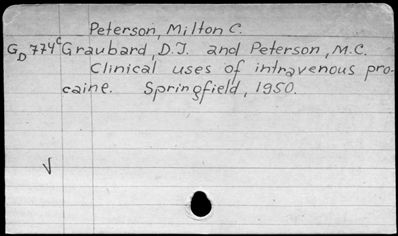 Peterson, Milton C.
GD774c Graubard, D.J. and Peterson, M.C.
Clinical uses of intravenous pro-
caine. Springfield, 1950.
√